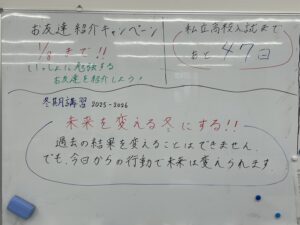 お友達紹介キャンペーン
1/8まで!!
いっしょに勉強する
お友達を紹介しよう!
私立高校入試まで
あと47日
冬期講習 2025-2026
未来を変える冬にする!!
過去の結果を変えることはできません。
でも、今日からの行動で未来は変えられます。